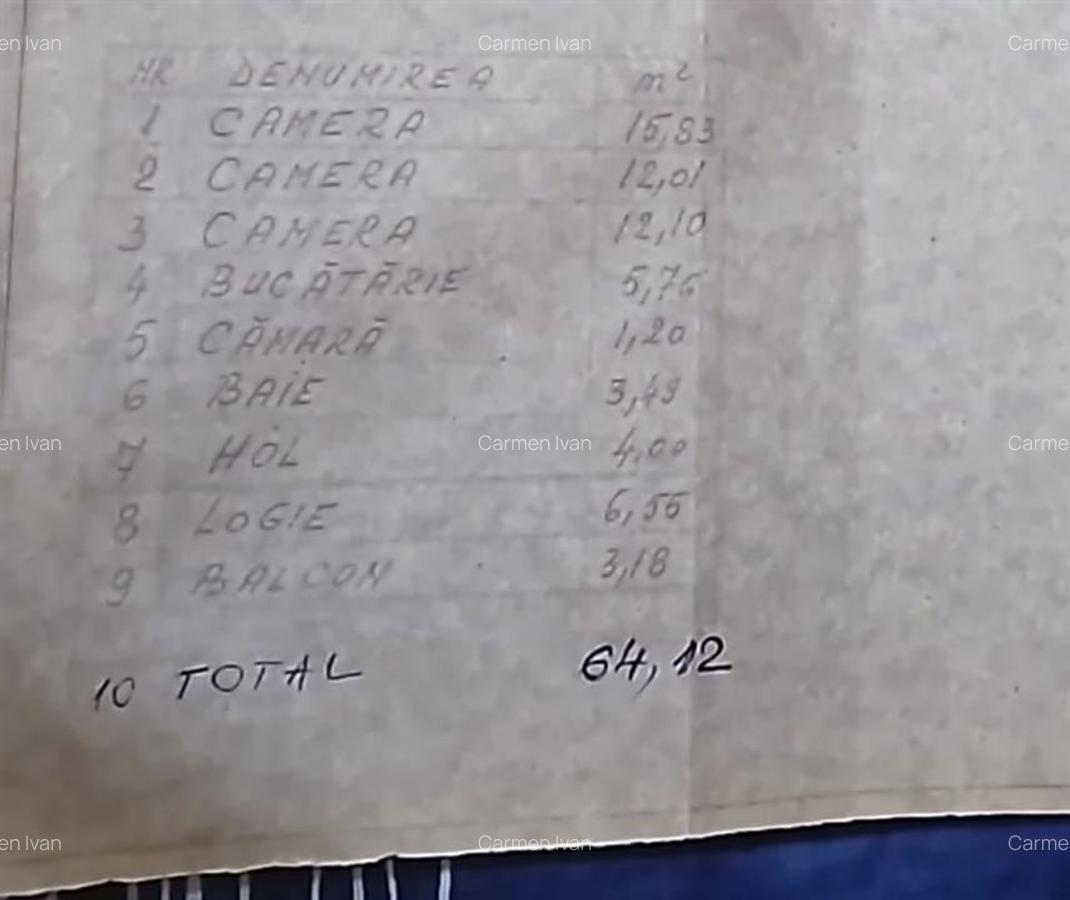 en Ivan Carmen Ivan Carme
NR DENUMIREA m²
1 CAMERA 15,83
2 CAMERA 12,01
3 CAMERA 12,10
4 BUCĂTĂRIE 5,76
5 CĂMARĂ 1,20
6 BAIE 3,49
en Ivan Carmen Ivan Carme
7 HOL 4,00
8 LOGIE 6,55
9 BALCON 3,18
10 TOTAL 64,12
en Ivan Carmen Ivan Carme